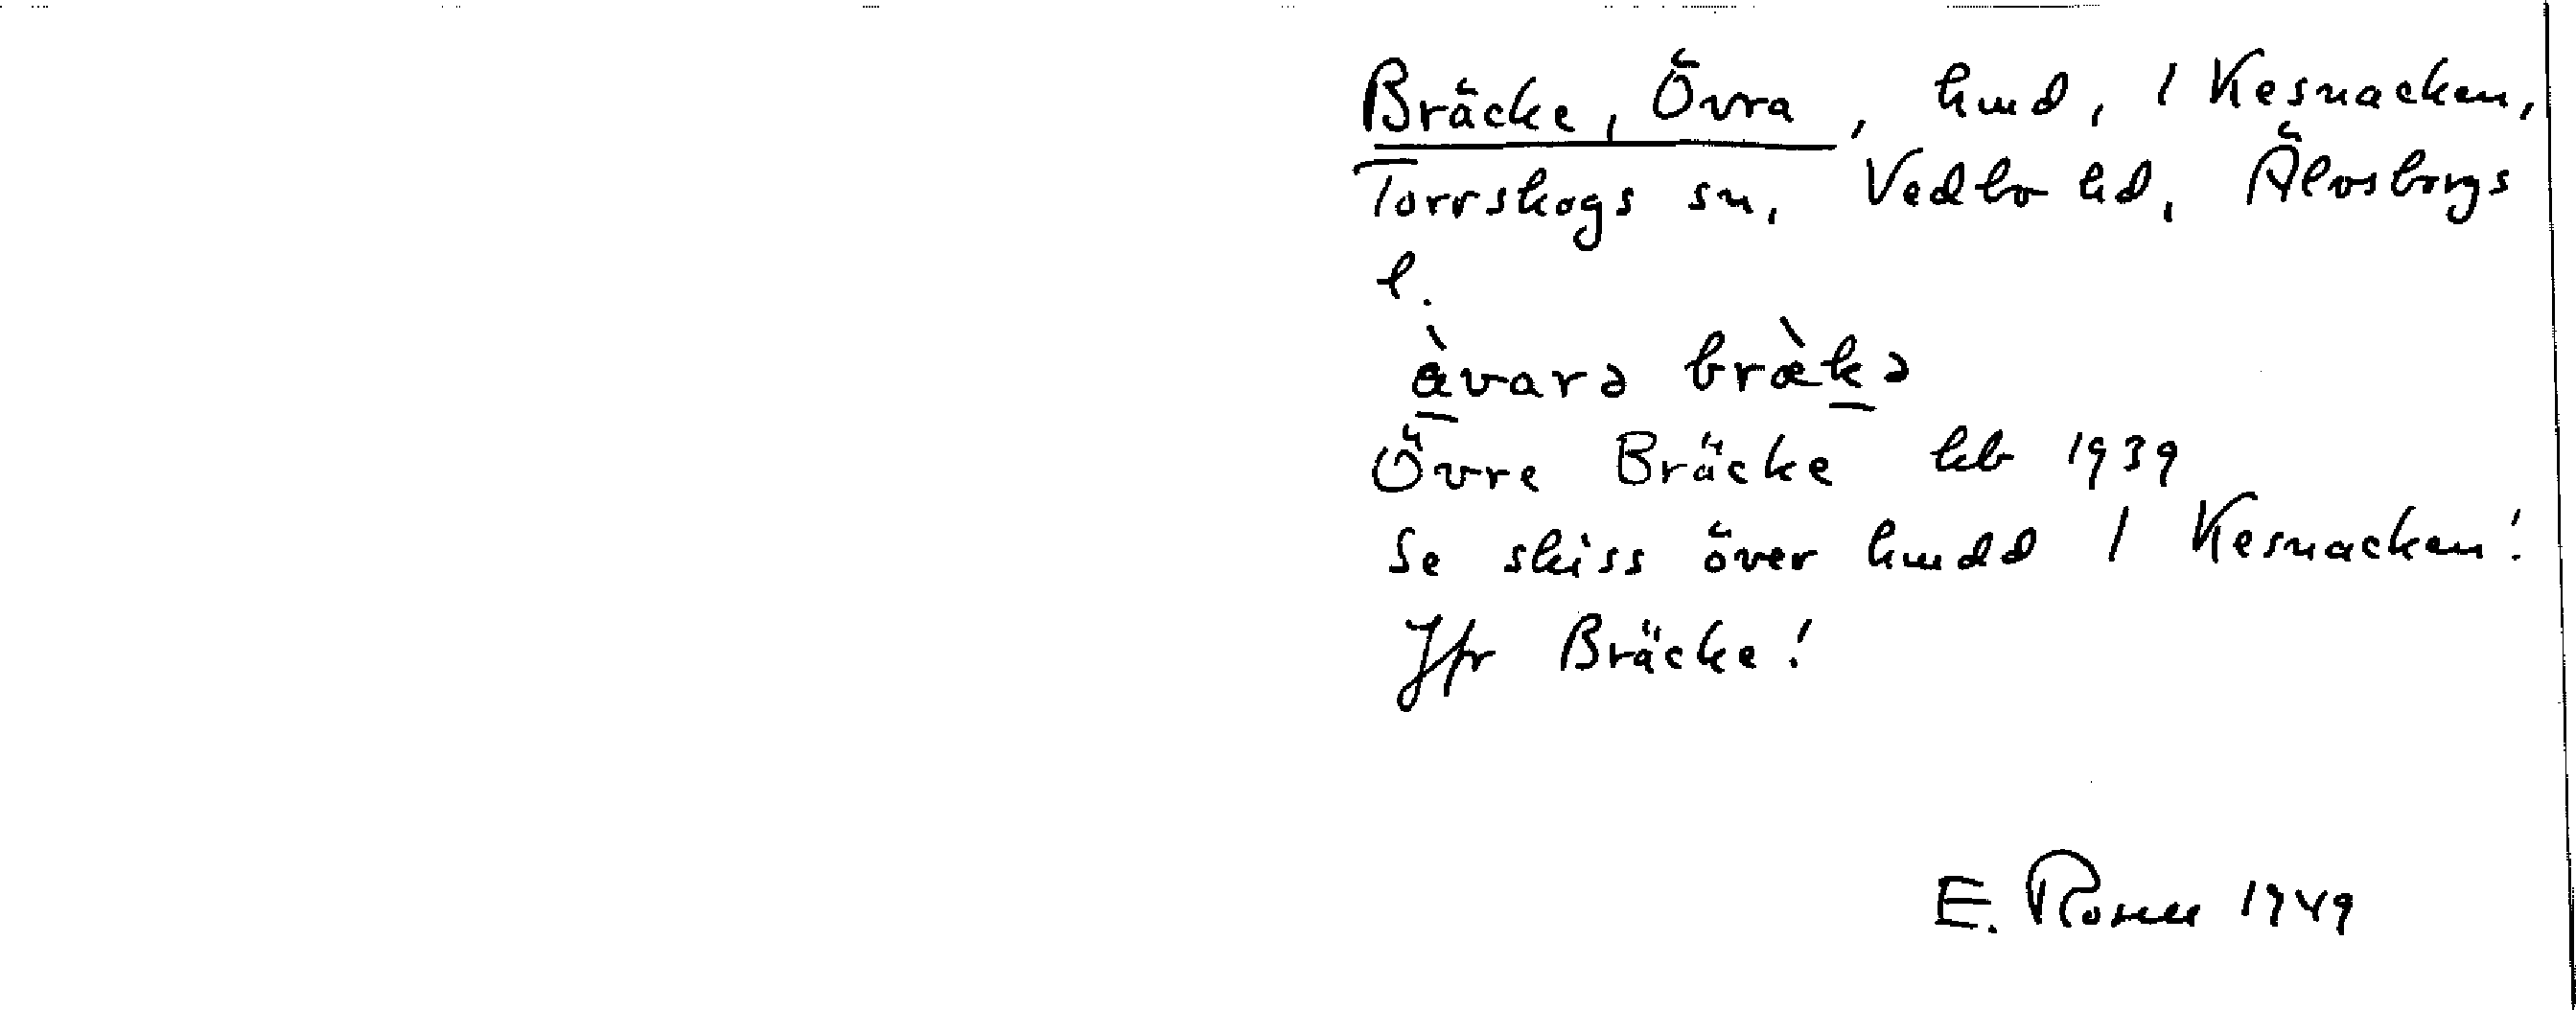 Bräcke, Övra, hmd, 1 Kesnacken,
Torrskogs sn, Vedbo hd, Älvsborgs
l.
àvarə bræ̀kə
Övre Bräcke kb 1939
Se skiss över hmdd 1 Kesnacken!
Jfr Bräcke!
E. Rosell 1949